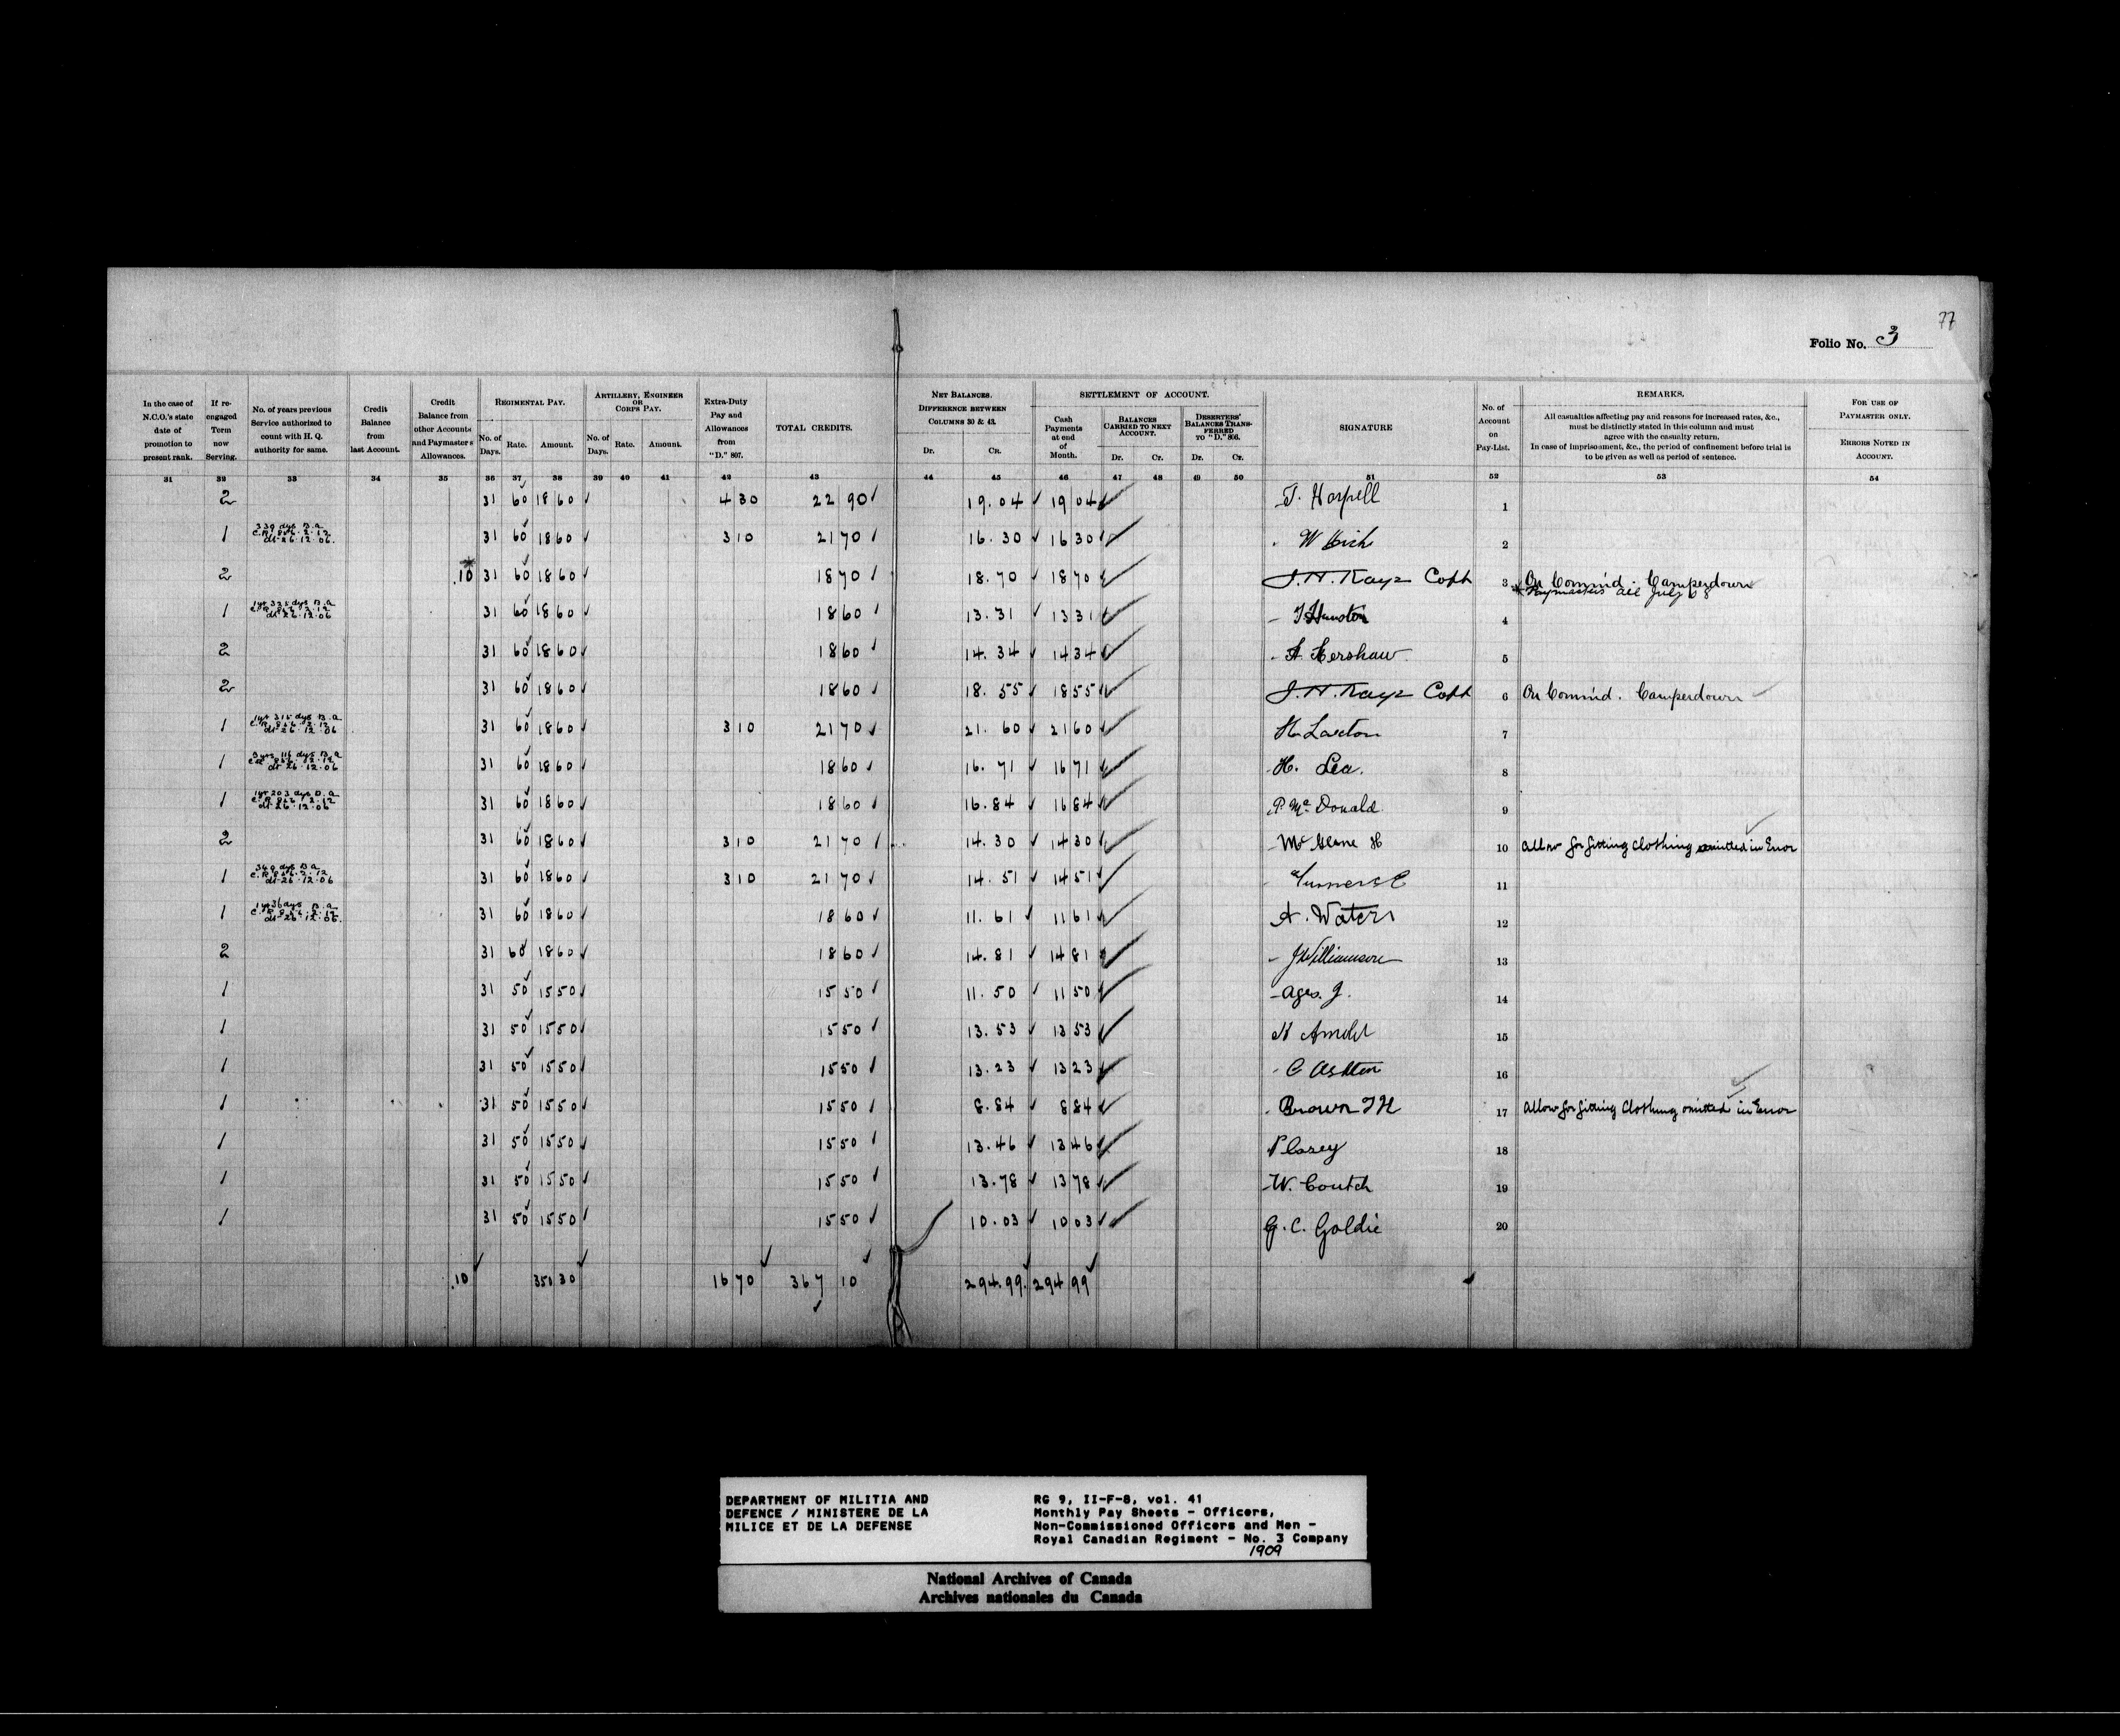 77
Folio No. 3
In the case of N.C.O.'s state date of promotion to present rank.
If re-engaged Term now Serving.
No. of years previous Service authorized to count with H. Q. authority for same.
Credit Balance from last Account.
Credit Balance from other Accounts and Paymaster's Allowances.
REGIMENTAL PAY.
No. of Days. Rate. Amount.
ARTILLERY, ENGINEER OR CORPS PAY.
No. of Days. Rate. Amount.
Extra-Duty Pay and Allowances from "D." 807.
TOTAL CREDITS.
NET BALANCES.
DIFFERENCE BETWEEN COLUMNS 30 & 43.
Dr. Cr.
SETTLEMENT OF ACCOUNT.
Cash Payments at end of Month.
BALANCES CARRIED TO NEXT ACCOUNT.
Dr. Cr.
DESERTERS' BALANCES TRANSFERRED TO "D." 806.
Dr. Cr.
SIGNATURE
No. of Account on Pay-List.
REMARKS.
All casualties affecting pay and reasons for increased rates, &c., must be distinctly stated in this column and must agree with the casualty return.
In case of imprisonment, &c., the period of confinement before trial is to be given as well as period of sentence.
FOR USE OF PAYMASTER ONLY.
ERRORS NOTED IN ACCOUNT.
31 32 33 34 35 36 37 38 39 40 41 42 43 44 45 46 47 48 49 50 51 52 53 54
2 31 60 18 60 4 30 22 90 19.04 19 04 T. Harpell 1
1 330 dys B.a 31 60 18 60 3 10 21 70 16.30 16 30 W 2
dt 26.12.06
2 .10 31 60 18 60 18 70 18.70 18 70 J. H. Kaye Capt 3 On Comm'd. Camperdown
* Paymasters July 08
1 dt 26.12.06 31 60 18 60 18 60 13.31 13 31 4
2 31 60 18 60 18 60 14.34 14 34 A. Kershaw 5
2 31 60 18 60 18 60 18.55 18 55 J. H. Kaye Capt 6 On Comm'd. Camperdown
1 1 yr 315 dys B.a 31 60 18 60 3 10 21 70 21.60 21 60 H. Laxton 7
dt 26.12.06
1 3 yrs 116 dys B.a 31 60 18 60 18 60 16.71 16 71 H. Lea. 8
dt 26.12.06
1 1 yr 203 dys B.a 31 60 18 60 18 60 16.84 16 84 P. McDonald 9
dt 26.12.06
2 31 60 18 60 3 10 21 70 14.30 14 30 H 10 Allow for fitting clothing omitted in Error
1 360 dys B.a 31 60 18 60 3 10 21 70 14.51 14 51 11
dt 26.12.06
1 dt 26.12.06. 31 60 18 60 18 60 11.61 11 61 A. Waters 12
2 31 60 18 60 18 60 14.81 14 81 J Williamson 13
1 31 50 15 50 15 50 11.50 11 50 Ages. J. 14
1 31 50 15 50 15 50 13.53 13 53 Arnold 15
1 31 50 15 50 15 50 13.23 13 23 C Ashton 16
1 31 50 15 50 15 50 8.84 8 84 Brown T H 17 Allow for fitting Clothing omitted in Error
1 31 50 15 50 15 50 13.46 13 46 P Casey 18
1 31 50 15 50 15 50 13.78 13 78 W. Coutch 19
1 31 50 15 50 15 50 10.03 10 03 G. C. Goldie 20
.10 350 30 16 70 367 10 294.99 294 99
DEPARTMENT OF MILITIA AND
DEFENCE / MINISTERE DE LA
MILICE ET DE LA DEFENSE
RG 9, II-F-8, vol. 41
Monthly Pay Sheets - Officers,
Non-Commissioned Officers and Men -
Royal Canadian Regiment - No. 3 Company
1909
National Archives of Canada
Archives nationales du Canada